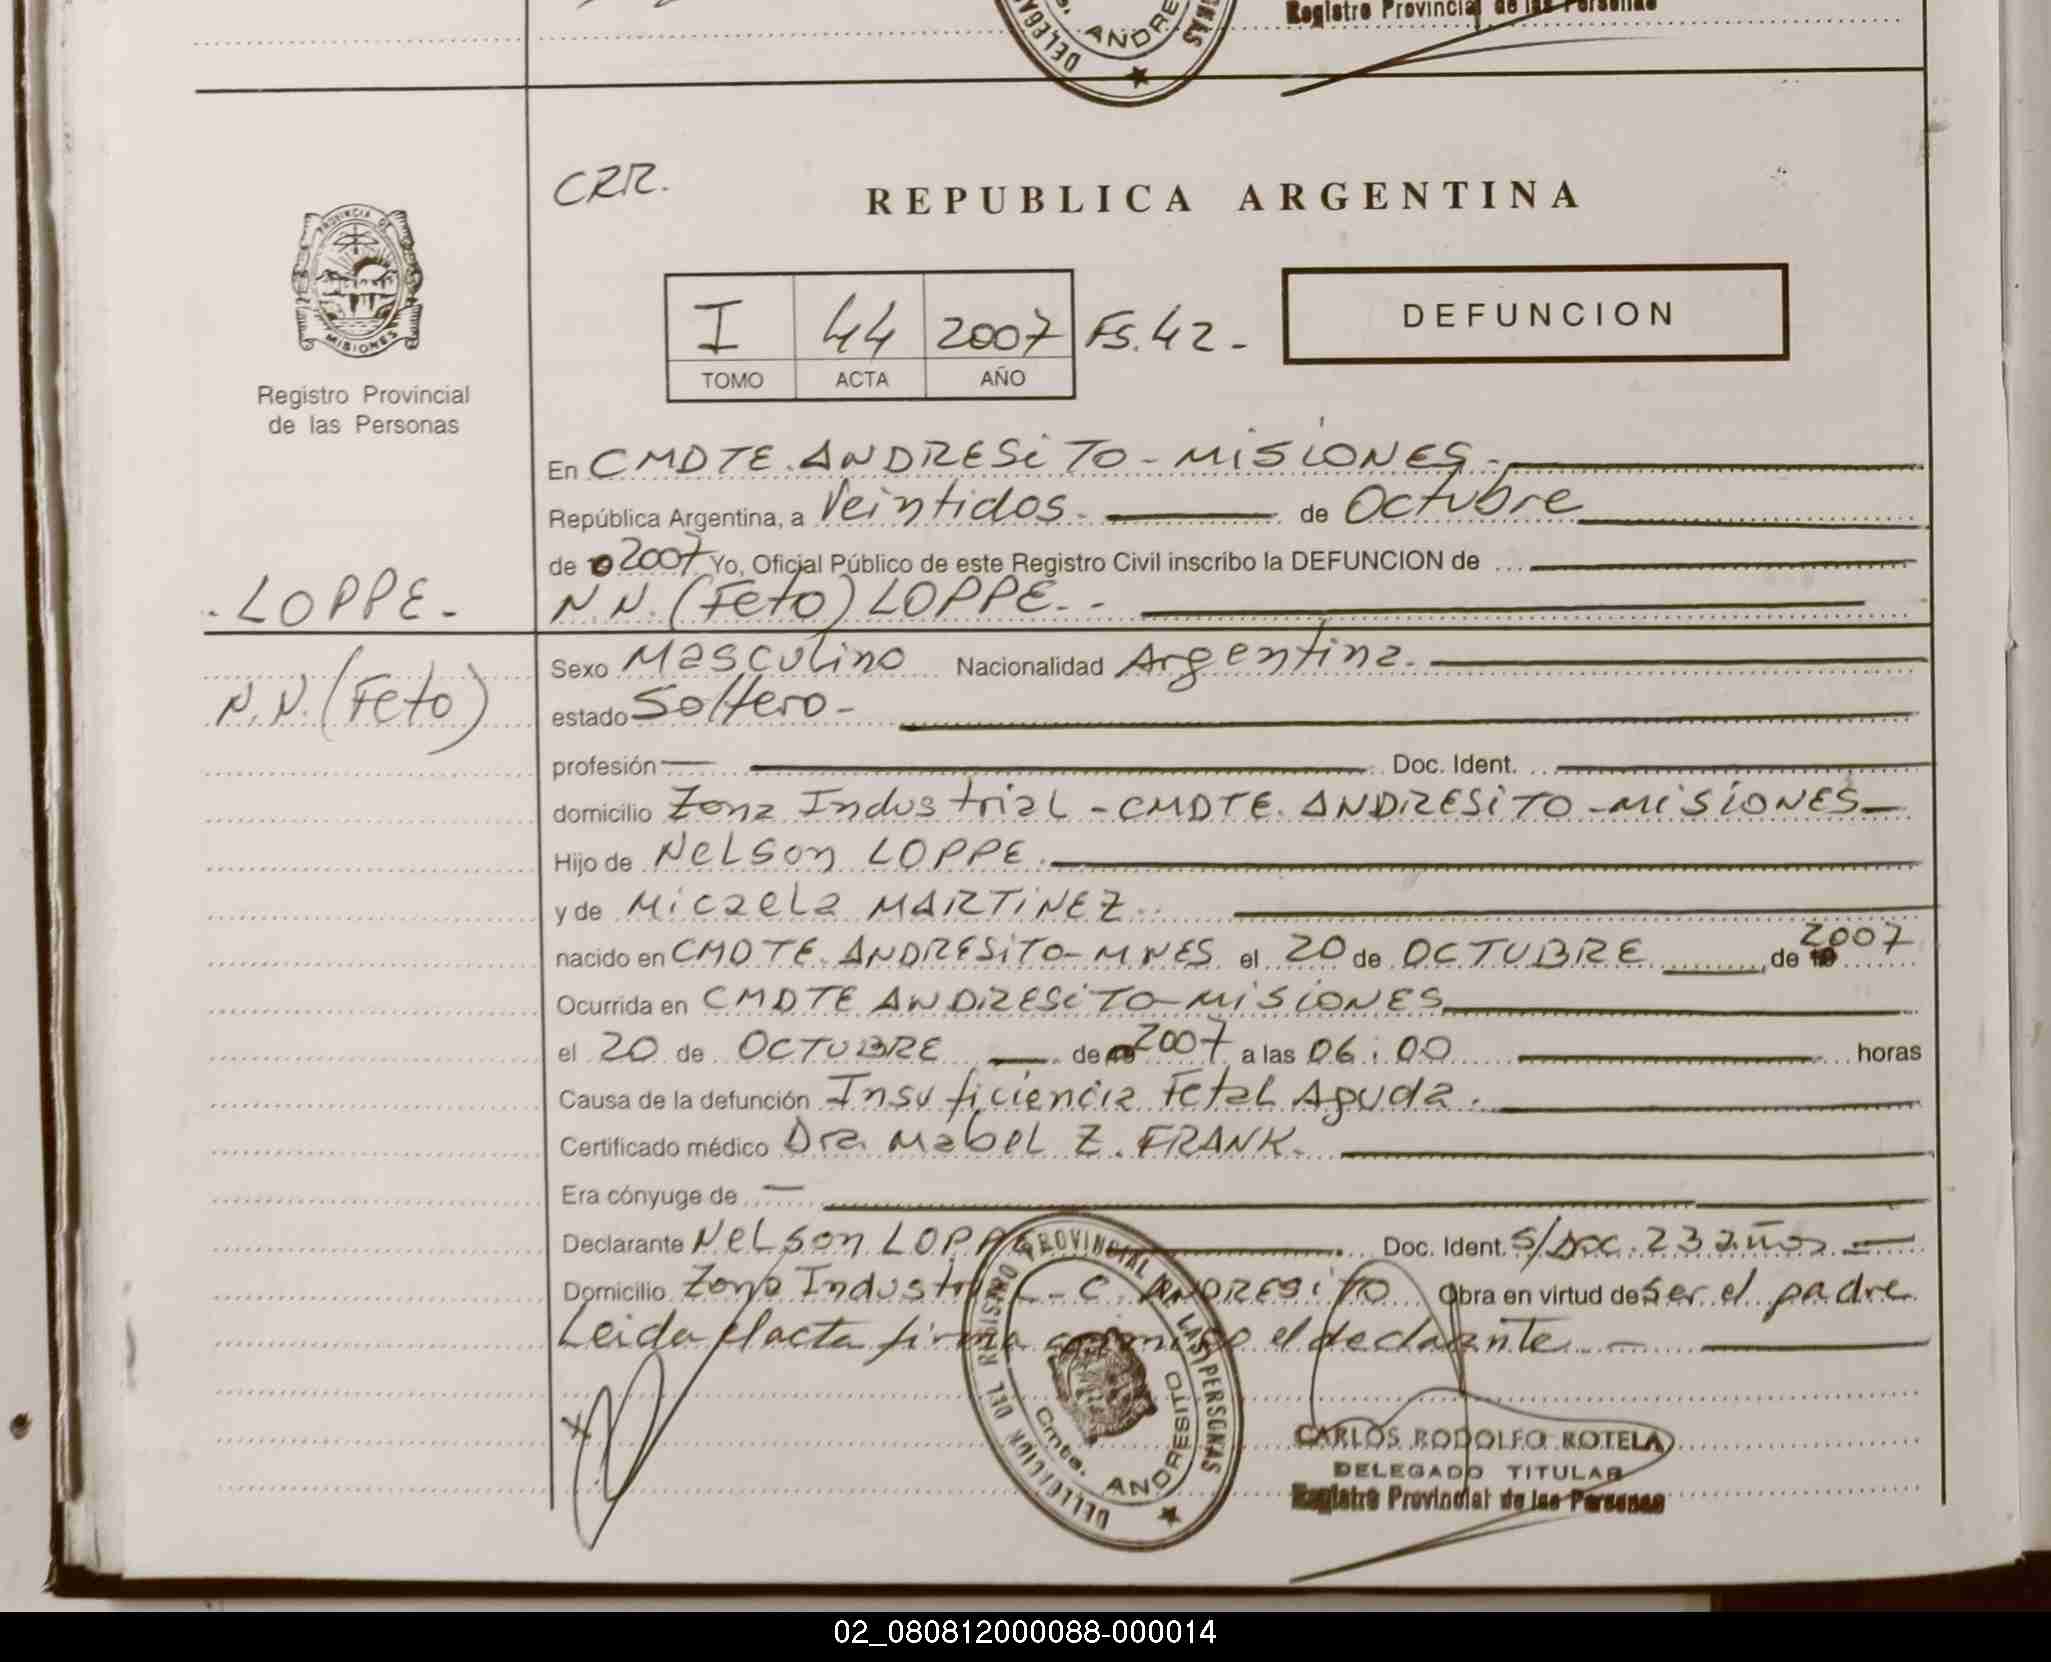 DELEGA
ANDRE
Registro Provincial de las Personas
CRR.
REPUBLICA ARGENTINA
PROVINCIA DE
MISIONES
Registro Provincial
de las Personas
I 44 2007 Fs. 42-
TOMO ACTA AÑO
DEFUNCION
En CMDTE. ANDRESiTO - MiSiONES.-
República Argentina, a Veintidos.- de Octubre
de 2007 Yo, Oficial Público de este Registro Civil inscribo la DEFUNCION de
- LOPPE -
N.N. (Feto) LOPPE.-
N.N. (Feto)
Sexo Masculino Nacionalidad Argentina.
estado Soltero-
profesión — Doc. Ident.
domicilio Zona Industrial - CMDTE. ANDRESiTO - MiSiONES-
Hijo de Nelson LOPPE.
y de Micaela MARTiNEZ.
nacido en CMDTE. ANDRESiTO-MNES. el 20 de OCTUBRE de 2007
Ocurrida en CMDTE ANDRESiTO-MiSiONES
el 20 de OCTUBRE de 2007 a las 06:00 horas
Causa de la defunción Insuficiencia Fetal Aguda.
Certificado médico Dra. Mabel Z. FRANK.
Era cónyuge de —
Declarante Nelson LOPPE Doc. Ident. S/Doc. 23 años -
Domicilio Zona Industrial - C. ANDRESiTO Obra en virtud de ser el padre
Leida el acta firma conmigo el declarante. -
X
DELEGACION DEL REGISTRO PROVINCIAL DE LAS PERSONAS
Cmte. ANDRESITO
CARLOS RODOLFO ROTELA
DELEGADO TITULAR
Registro Provincial de las Personas
02_080812000088-000014